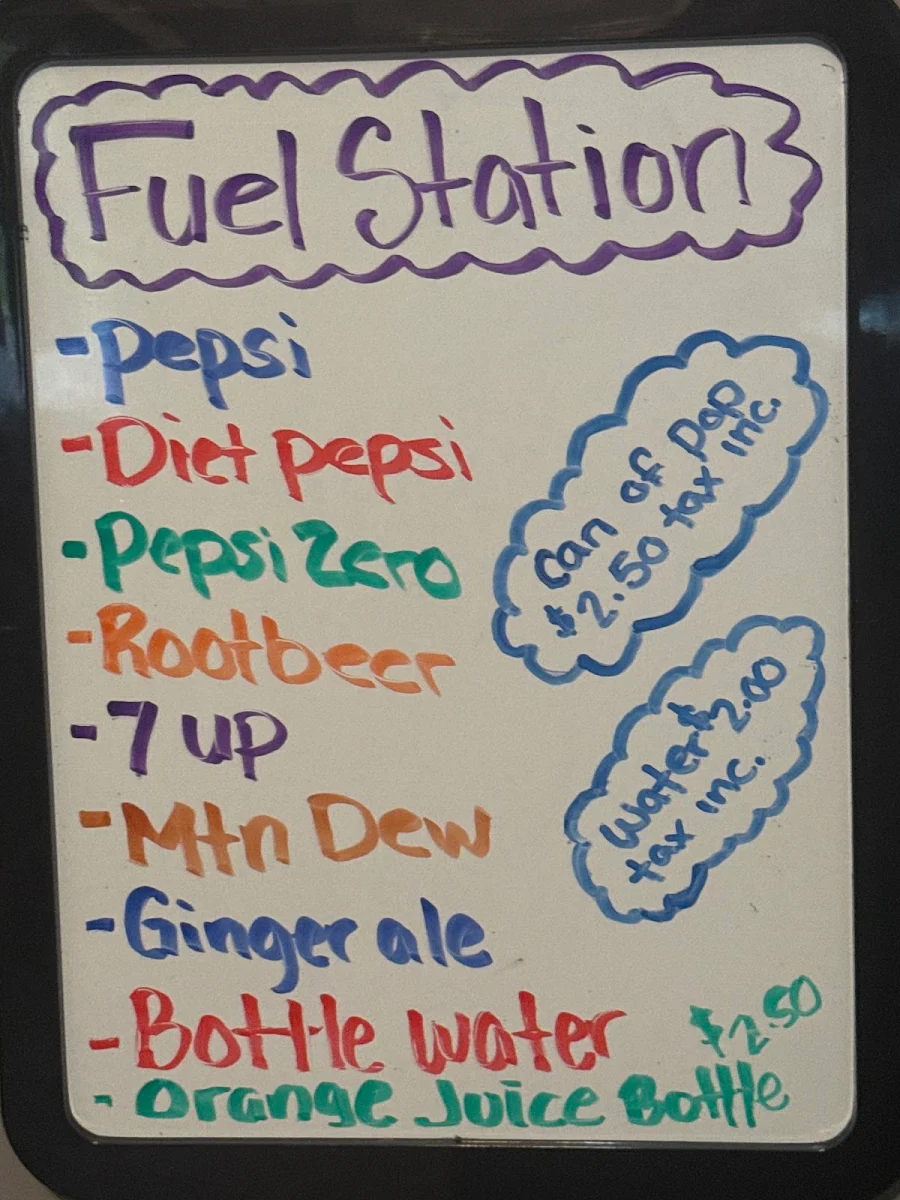 Fuel Station
- Pepsi
- Diet pepsi
- Pepsi Zero
- Rootbeer
- 7 up
- Mtn Dew
- Ginger ale
- Bottle water
- Orange Juice Bottle
$2.50
Can of Pop
$2.50 tax inc.
Water $2.00
tax inc.